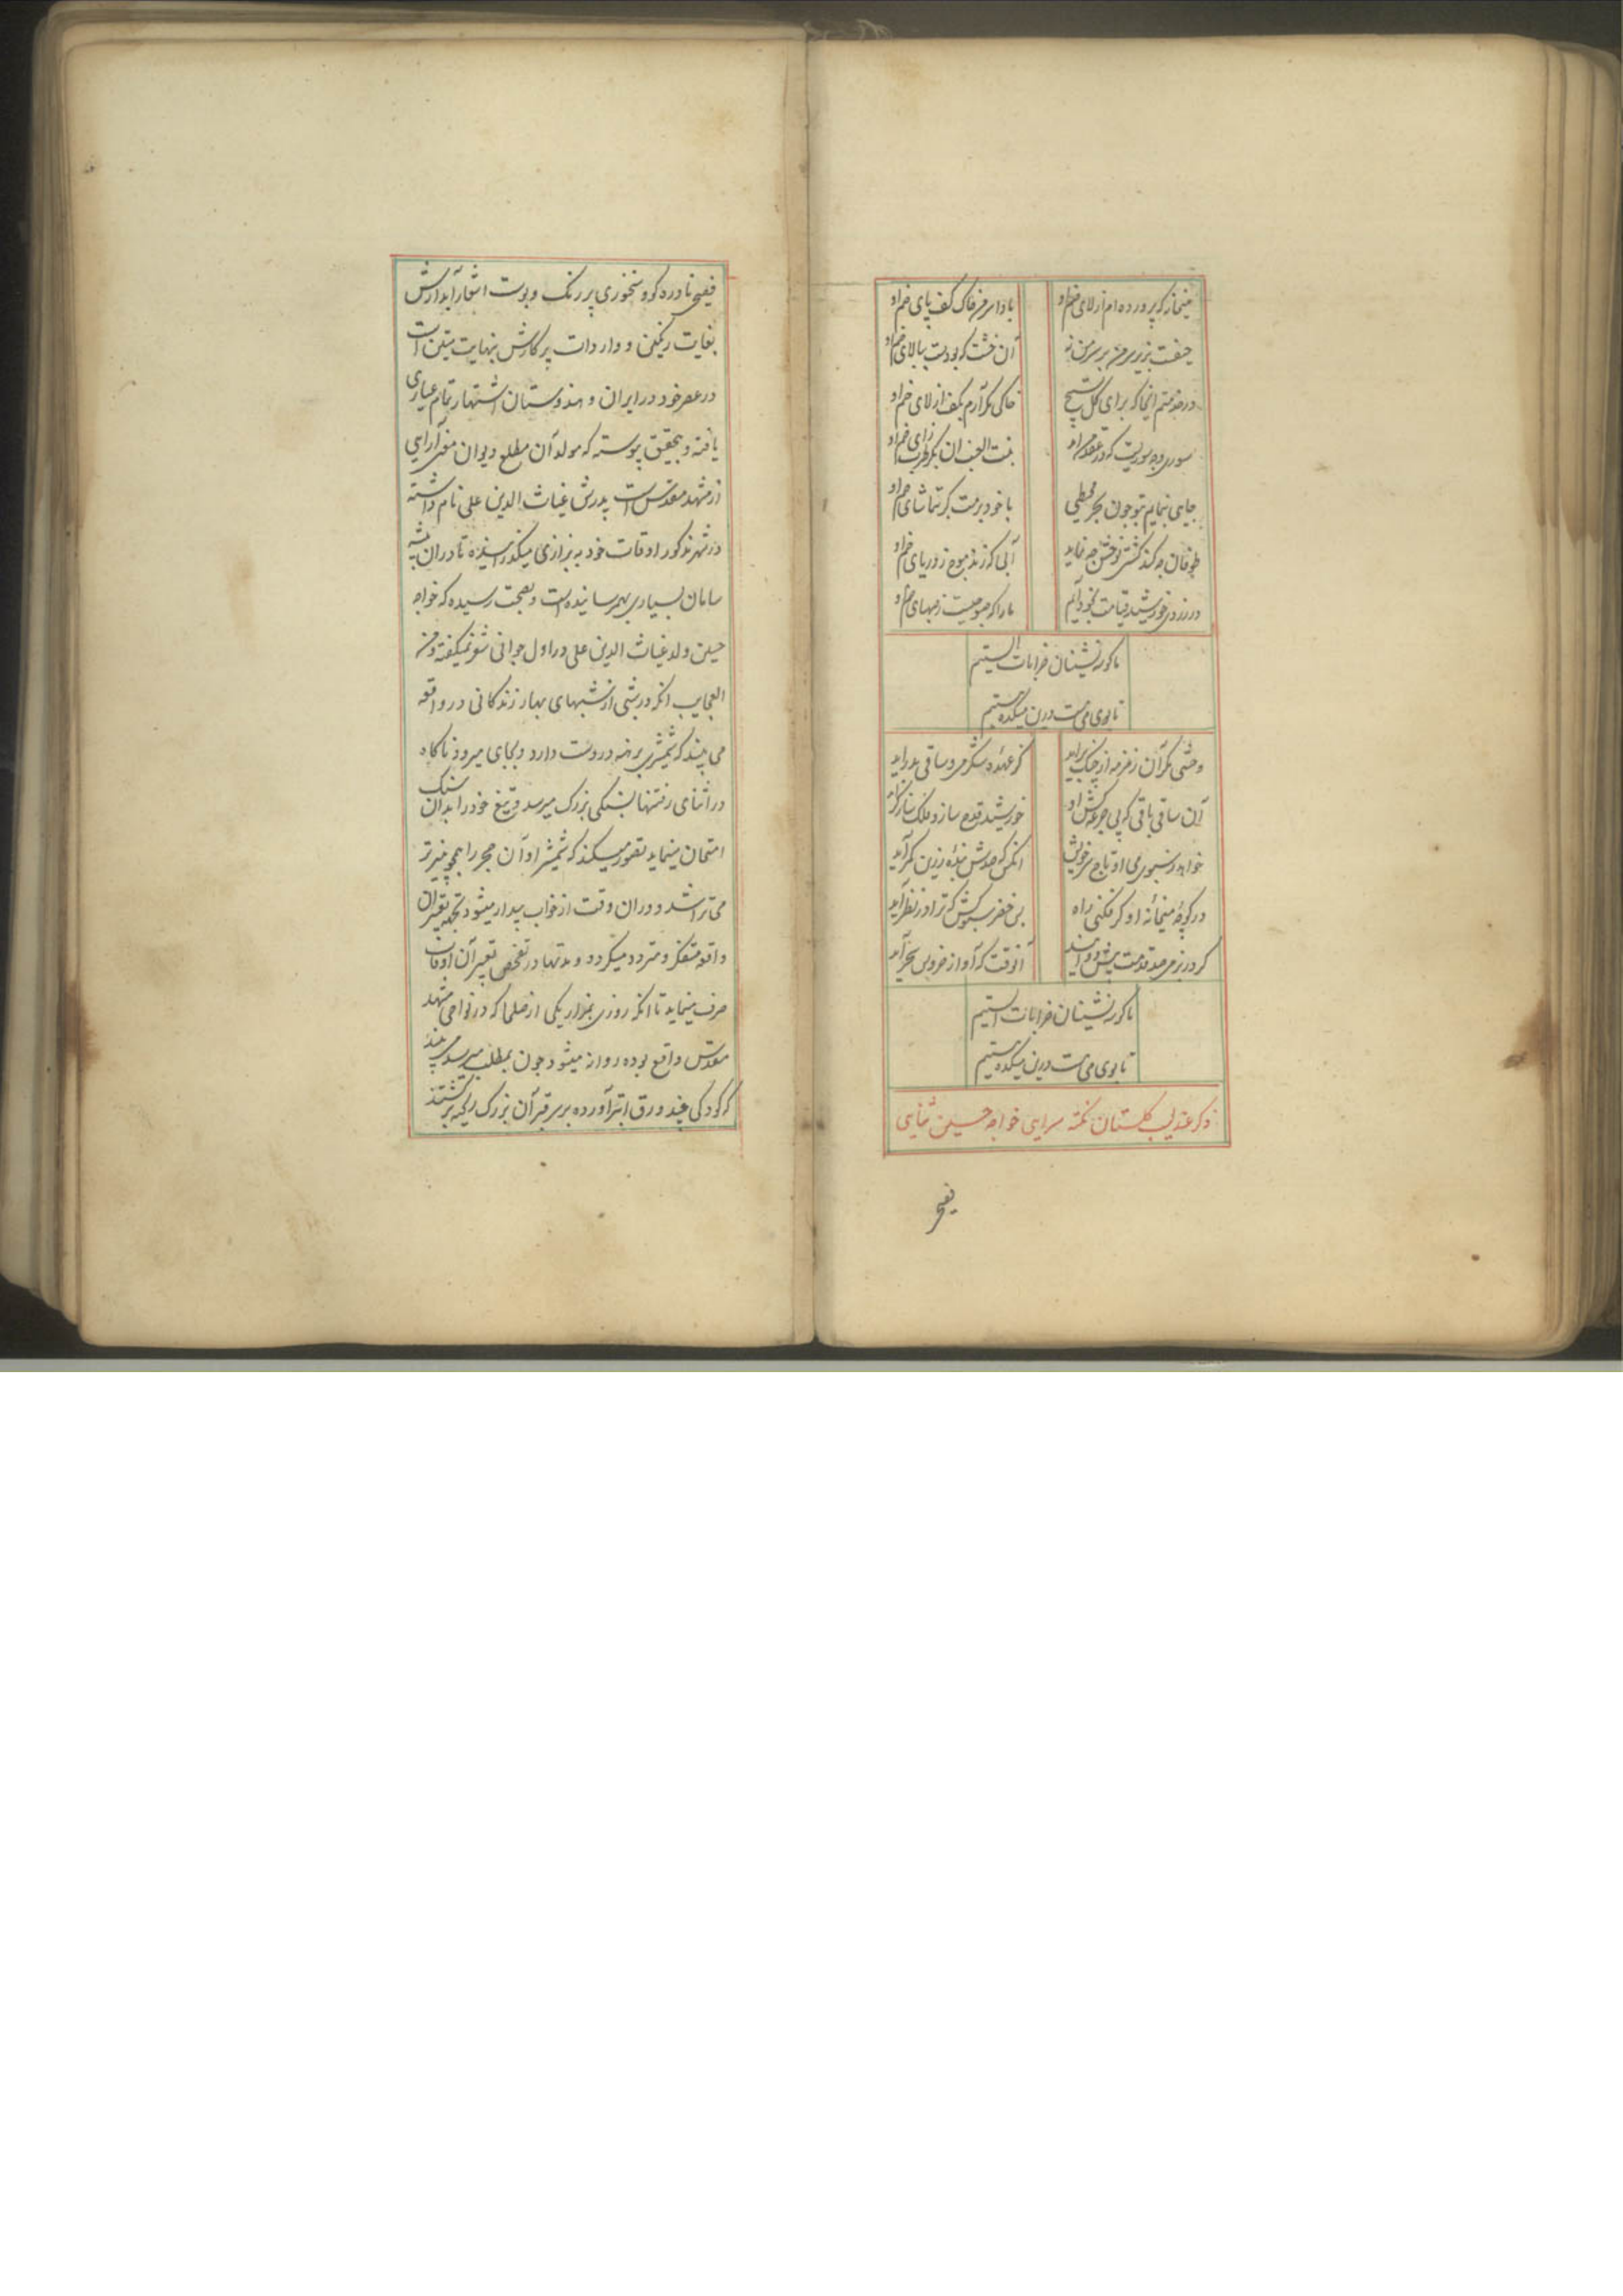 میخانه که پرورده‌ام از لای خم او
بادا سر من خاک کف پای خم او
حیفست بزیر سر من بر سر من نه
آن خشت که بودست ببالای خم او
در خدمتم اینجا که برای گل تسبیح
خاکی بکف آرم بکف از لای خم او
جای بنمایم بتو چون بحر محیطی
با خود برمت گر بتماشای خم او
طوفان چه کند کشتی نوحش چه نماید
آبی که زند موج ز دریای خم او
در زردی خورشید قیامت بخود آئیم
ما را که صبوحیست ز صهبای خم او
ما گوشه نشینان خرابات الستیم
تا بوی می هست درین میکده مستیم
وحشی مگر آن زمزمه از چنگ برآید
کز عهده شکر می و ساقی بدر آید
آن ساقی باقی که پی جرعه کش او
خورشید قدح سازد و فلک
خواهد ز سبوی می او تاج سر خویش
آنکس که صدش بنده زرین کمر آید
در کوچه میخانه او گر فکنی راه
بس خضر سبوکش که ترا در نظر آید
گر در نرمی صد قدمت پیش دوانند
آنوقت که آواز خروس سحر آید
ما گوشه نشینان خرابات الستیم
تا بوی می هست درین میکده مستیم
ذکر عندلیب گلستان نکته سرایی خواجه حسین ثنایی
فصیح
فصیحی نادره گو و سخنوری پر رنگ و بوست اشعار آبدارش
بغایت رنگین و واردات پرکارش بنهایت متین است
در عصر خود در ایران و هندوستان اشتهار تمام عیاری
یافته و بتحقیق پیوسته که مولد آن مطلع دیوان سخن آرایی
از مشهد مقدس است پدرش غیاث الدین علی نام داشته
در شهر مذکور اوقات خود به بزازی میگذرانیده تا دران پیشه
سامان بسیاری بهم رسانیده است و بصحت رسیده که خواجه
حسین ولد غیاث الدین علی در اول جوانی شعر نمیگفته و من
العجایب آنکه در شبی از شبهای بهار زندگانی در واقعه
می بیند که شمشیری برهنه در دست دارد و بجای میرود ناگاه
در اثنای رفتنها بسنگی بزرگ میرسد و تیغ خود را بدان سنگ
امتحان مینماید تصور میکند که شمشیر او آن حجر را همچو پنیر تر
می تراشد و دران وقت از خواب بیدار میشود بجهة تعبیر آن
واقعه متفکر و متردد میگردد و مدتها در تفحص تعبیر آن اوقات
صرف مینماید تا آنکه روزی بمزار یکی از صلحا که در نواحی مشهد
مقدس واقع بوده روانه میشود چون بمطلب میرسد می بیند
که کودکی چند ورق ابتر آورده بر سر قبر آن بزرگ ریخته برگشتند